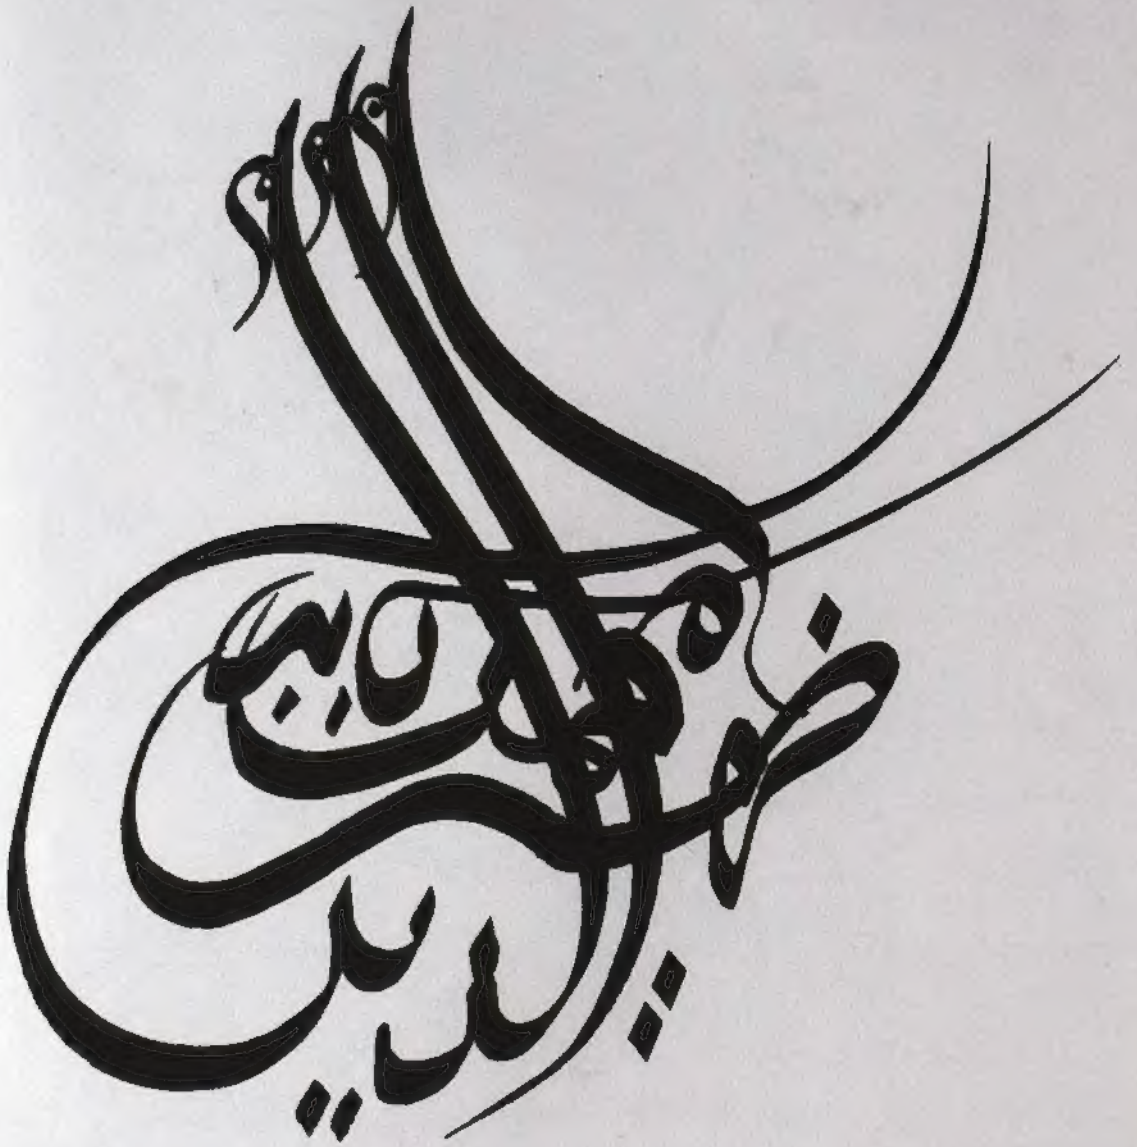 ظهير الدين محمد بابر